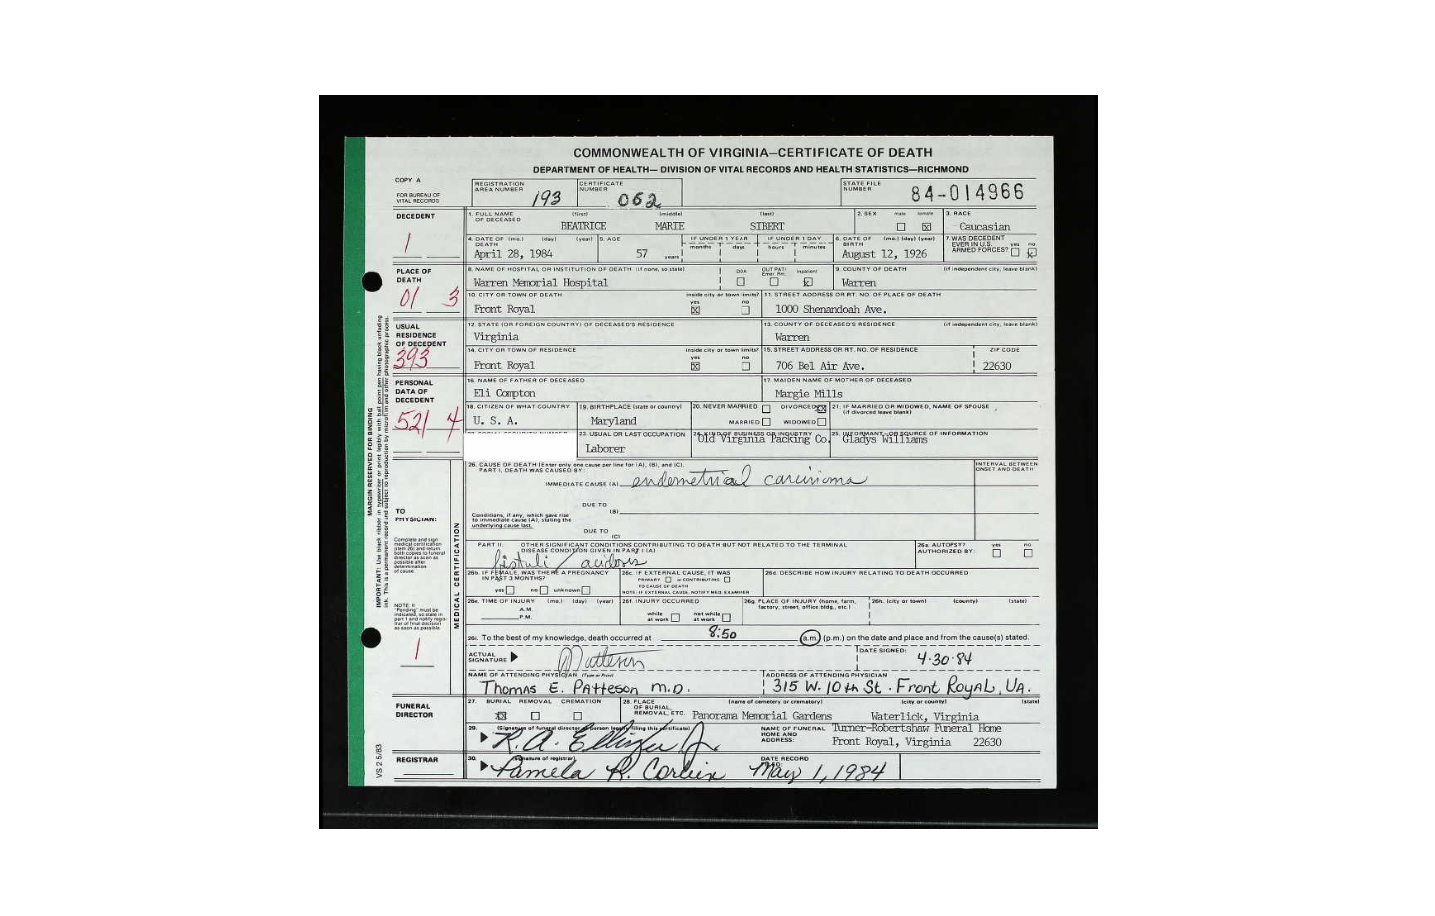 COMMONWEALTH OF VIRGINIA—CERTIFICATE OF DEATH
DEPARTMENT OF HEALTH— DIVISION OF VITAL RECORDS AND HEALTH STATISTICS—RICHMOND
COPY A
FOR BUREAU OF VITAL RECORDS
REGISTRATION AREA NUMBER 193
CERTIFICATE NUMBER 062
STATE FILE NUMBER 84-014966
DECEDENT
1
1. FULL NAME OF DECEASED (first) (middle) (last)
BEATRICE MARIE SIBERT
2. SEX male female ☐ ☒
3. RACE
Caucasian
4. DATE OF DEATH (mo.) (day) (year)
April 28, 1984
5. AGE
57 years
IF UNDER 1 YEAR
months days
IF UNDER 1 DAY
hours minutes
6. DATE OF BIRTH (mo.) (day) (year)
August 12, 1926
7. WAS DECEDENT EVER IN U.S. ARMED FORCES? yes no ☐ ☒
PLACE OF DEATH
01 3
8. NAME OF HOSPITAL OR INSTITUTION OF DEATH (if none, so state)
Warren Memorial Hospital
DOA OUT PAT/ Emer. Rm. Inpatient ☐ ☐ ☒
9. COUNTY OF DEATH (if independent city, leave blank)
Warren
10. CITY OR TOWN OF DEATH
Front Royal
inside city or town limits? yes no ☒ ☐
11. STREET ADDRESS OR RT. NO. OF PLACE OF DEATH
1000 Shenandoah Ave.
USUAL RESIDENCE OF DECEDENT
393
12. STATE (OR FOREIGN COUNTRY) OF DECEASED'S RESIDENCE
Virginia
13. COUNTY OF DECEASED'S RESIDENCE (if independent city, leave blank)
Warren
14. CITY OR TOWN OF RESIDENCE
Front Royal
inside city or town limits? yes no ☒ ☐
15. STREET ADDRESS OR RT. NO. OF RESIDENCE
706 Bel Air Ave.
ZIP CODE
22630
PERSONAL DATA OF DECEDENT
521 4
16. NAME OF FATHER OF DECEASED
Eli Compton
17. MAIDEN NAME OF MOTHER OF DECEASED
Margie Mills
18. CITIZEN OF WHAT COUNTRY
U. S. A.
19. BIRTHPLACE (state or country)
Maryland
20. NEVER MARRIED ☐ DIVORCED ☒
MARRIED ☐ WIDOWED ☐
21. IF MARRIED OR WIDOWED, NAME OF SPOUSE (if divorced leave blank)
23. USUAL OR LAST OCCUPATION
Laborer
24. KIND OF BUSINESS OR INDUSTRY
Old Virginia Packing Co.
25. INFORMANT, OR SOURCE OF INFORMATION
Gladys Williams
MARGIN RESERVED FOR BINDING
IMPORTANT: Use black ribbon in typewriter or print legibly with ball point pen having black unfading ink. This is a permanent record and subject to reproduction by microfilm and other photographic process.
TO PHYSICIAN:
Complete and sign medical certification (item 26) and return both copies to funeral director as soon as possible after determination of cause.
NOTE: If "Pending" must be indicated, so state in part 1 and notify registrar of final decision as soon as possible
1
MEDICAL CERTIFICATION
26. CAUSE OF DEATH (Enter only one cause per line for (A), (B), and (C).
PART I. DEATH WAS CAUSED BY:
INTERVAL BETWEEN ONSET AND DEATH
IMMEDIATE CAUSE (A) endometrial carcinoma
DUE TO (B)
Conditions, if any, which gave rise to immediate cause (A), stating the underlying cause last.
DUE TO (C)
PART II. OTHER SIGNIFICANT CONDITIONS CONTRIBUTING TO DEATH BUT NOT RELATED TO THE TERMINAL DISEASE CONDITION GIVEN IN PART I (A)
fistuli / acidosis
26a. AUTOPSY? AUTHORIZED BY: yes no ☐ ☐
26b. IF FEMALE, WAS THERE A PREGNANCY IN PAST 3 MONTHS?
yes ☐ no ☐ unknown ☐
26c. IF EXTERNAL CAUSE, IT WAS
PRIMARY ☐ or CONTRIBUTING ☐
TO CAUSE OF DEATH
NOTE: IF EXTERNAL CAUSE, NOTIFY MED. EXAMINER
26d. DESCRIBE HOW INJURY RELATING TO DEATH OCCURRED
26e. TIME OF INJURY (mo.) (day) (year)
A.M.
P.M.
26f. INJURY OCCURRED
while at work ☐ not while at work ☐
26g. PLACE OF INJURY (home, farm, factory, street, office bldg., etc.)
26h. (city or town) (county) (state)
26i. To the best of my knowledge, death occurred at 8:50 (a.m.) (p.m.) on the date and place and from the cause(s) stated.
ACTUAL SIGNATURE Patteson
DATE SIGNED: 4-30-84
NAME OF ATTENDING PHYSICIAN (Type or Print)
Thomas E. Patteson M.D.
ADDRESS OF ATTENDING PHYSICIAN
315 W. 10th St. Front Royal, VA.
FUNERAL DIRECTOR
27. BURIAL REMOVAL CREMATION ☒ ☐ ☐
28. PLACE OF BURIAL, REMOVAL, ETC. (name of cemetery or crematory) (city or county) (state)
Panorama Memorial Gardens Waterlick, Virginia
29. (Signature of funeral director or person legally filing this certificate)
R. A. Ellinger Jr.
NAME OF FUNERAL HOME AND ADDRESS: Turner-Robertshaw Funeral Home
Front Royal, Virginia 22630
REGISTRAR
30. (signature of registrar)
Pamela R. Corbin
DATE RECORD
May 1, 1984
VS 2 5/83